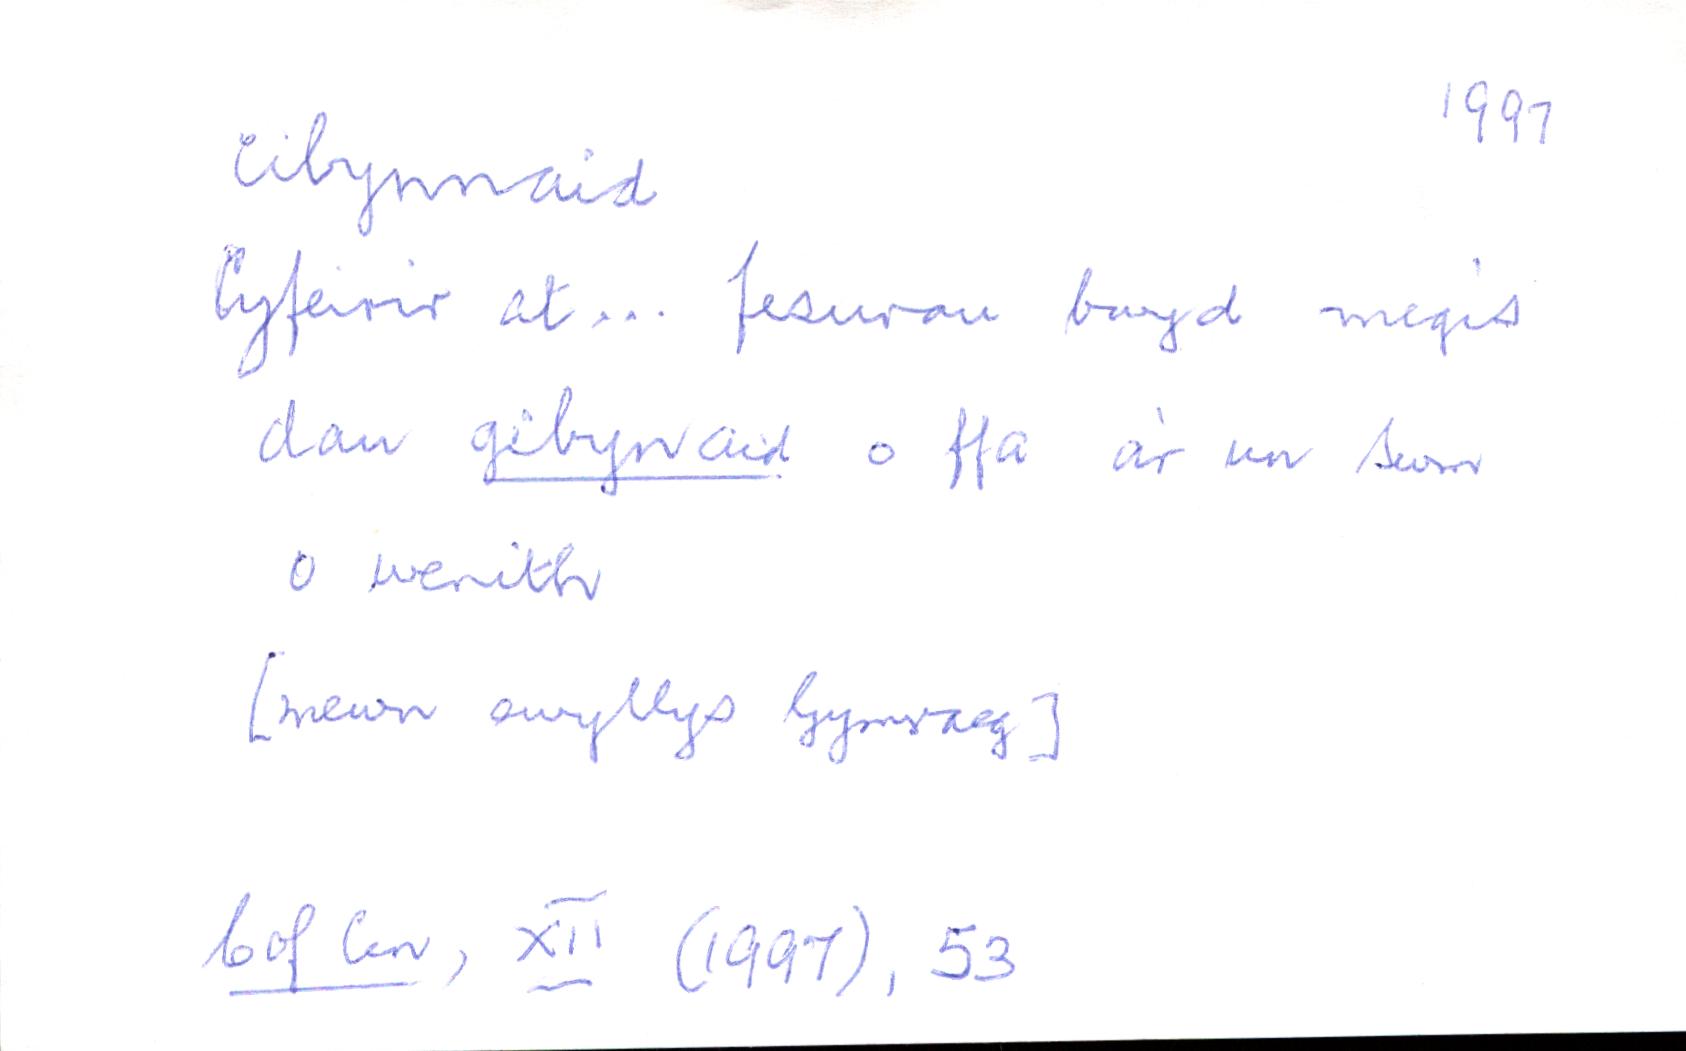 1997
cibynnaid
Cyfeirir at... fesurau bwyd megis
dau gibynaid o ffa a'r un swm
o wenith
[mewn ewyllys Gymraeg]
Cof Cen, XII (1997), 53